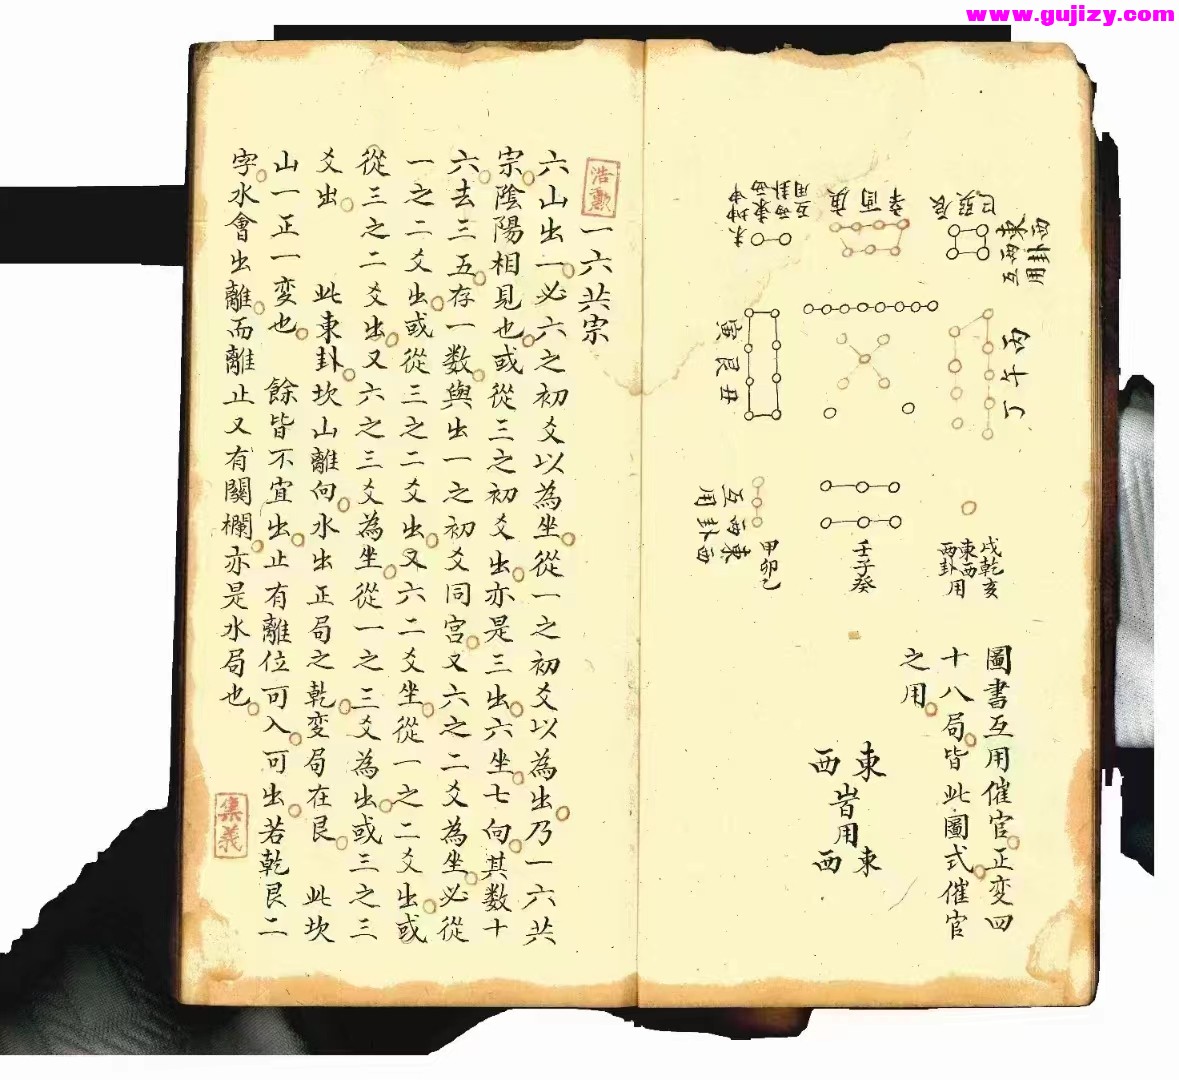 www.gujizy.com
巳巽辰
東西卦
西互用
辛酉庚
互西東坤申
用卦西未
丙午丁
寅艮丑
戌乾亥
東西
西卦用
壬子癸
甲卯乙
東西卦
西互用
圖書互用催官正变四
十八局皆此圖式催官
之用
東西
皆用
東西
浩勳
一六共宗
六山出一必六之初爻以為坐從一之初爻以為出乃一六共
宗陰陽相見也或從三之初爻出亦是三出六坐七向其數十
六去三五存一數與出一之初爻同宮又六之二爻為坐必從
一之二爻出或從三之二爻出又六二爻坐從一之二爻出或
從三之二爻出又六之三爻為坐從一之三爻為出或三之三
爻出 此東卦坎山離向水出正局之乾变局在艮 此坎
山一正一变也 餘皆不宜出止有離位可入可出若乾艮二
字水會出離而離止又有關欄亦是水局也
集義